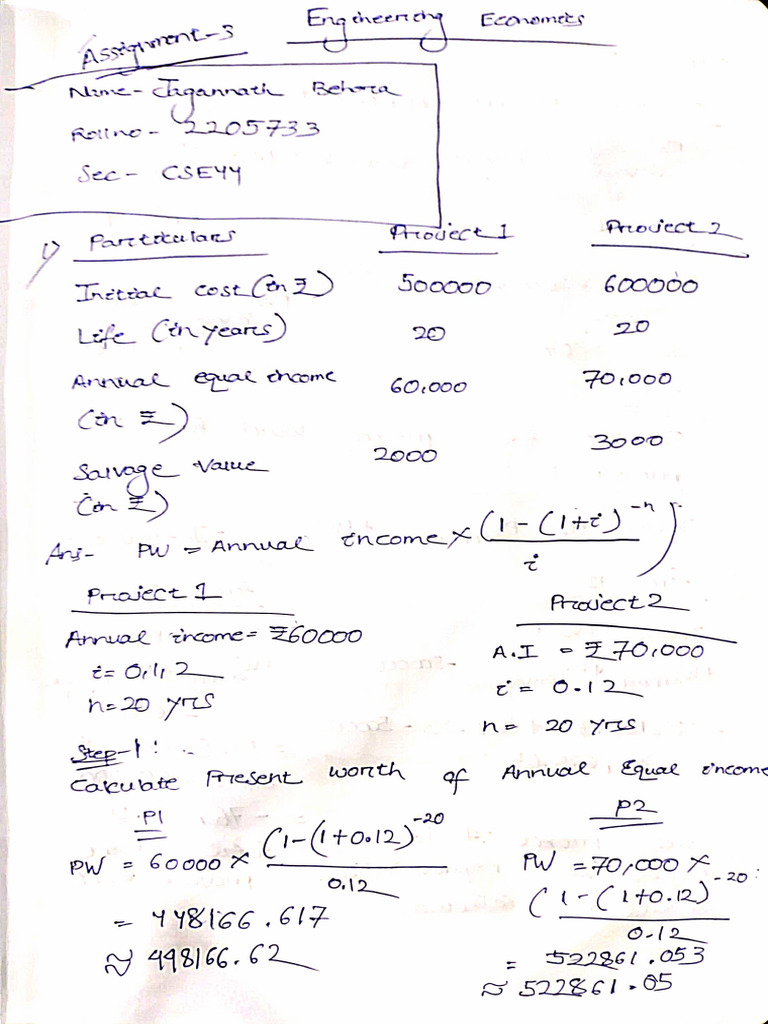 Assignment-3 Engineering Economics
Name- Jagannath Behera
Rollno- 2205733
Sec- CSE44
1) Particulars Project 1 Project 2
Initial cost (in ₹) 500000 600000
Life (in years) 20 20
Annual equal income 60,000 70,000
(in ₹)
Salvage value 2000 3000
(in ₹)
Ans- PW = Annual income × (1 - (1+i)^-n / i)
Project 1 Project 2
Annual income= ₹60000 A.I = ₹70,000
i= 0.12 i= 0.12
n=20 yrs n= 20 yrs
Step-1:
Calculate Present worth of Annual Equal income
P1 P2
PW = 60000 × (1-(1+0.12)^-20 / 0.12 PW =70,000 × (1-(1+0.12)^-20 / 0.12
= 448166.617 = 522861.053
≈ 448166.62 ≈ 522861.05